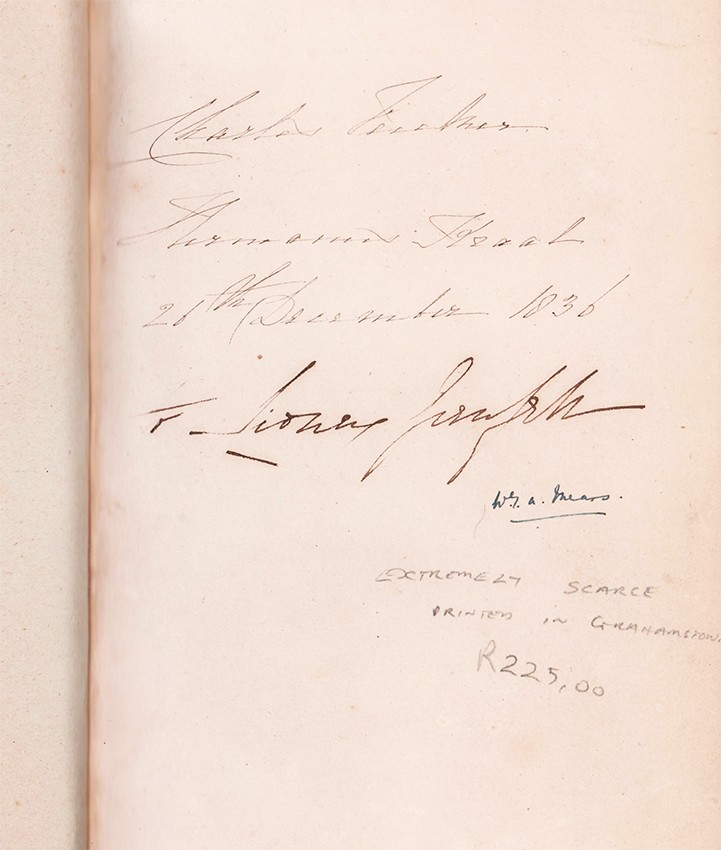 Charles
Hermanus Kraal
26th December 1836
to Sidney
W. G. A. Mears.
EXTREMELY SCARCE
PRINTED IN GRAHAMSTOWN
R225,00